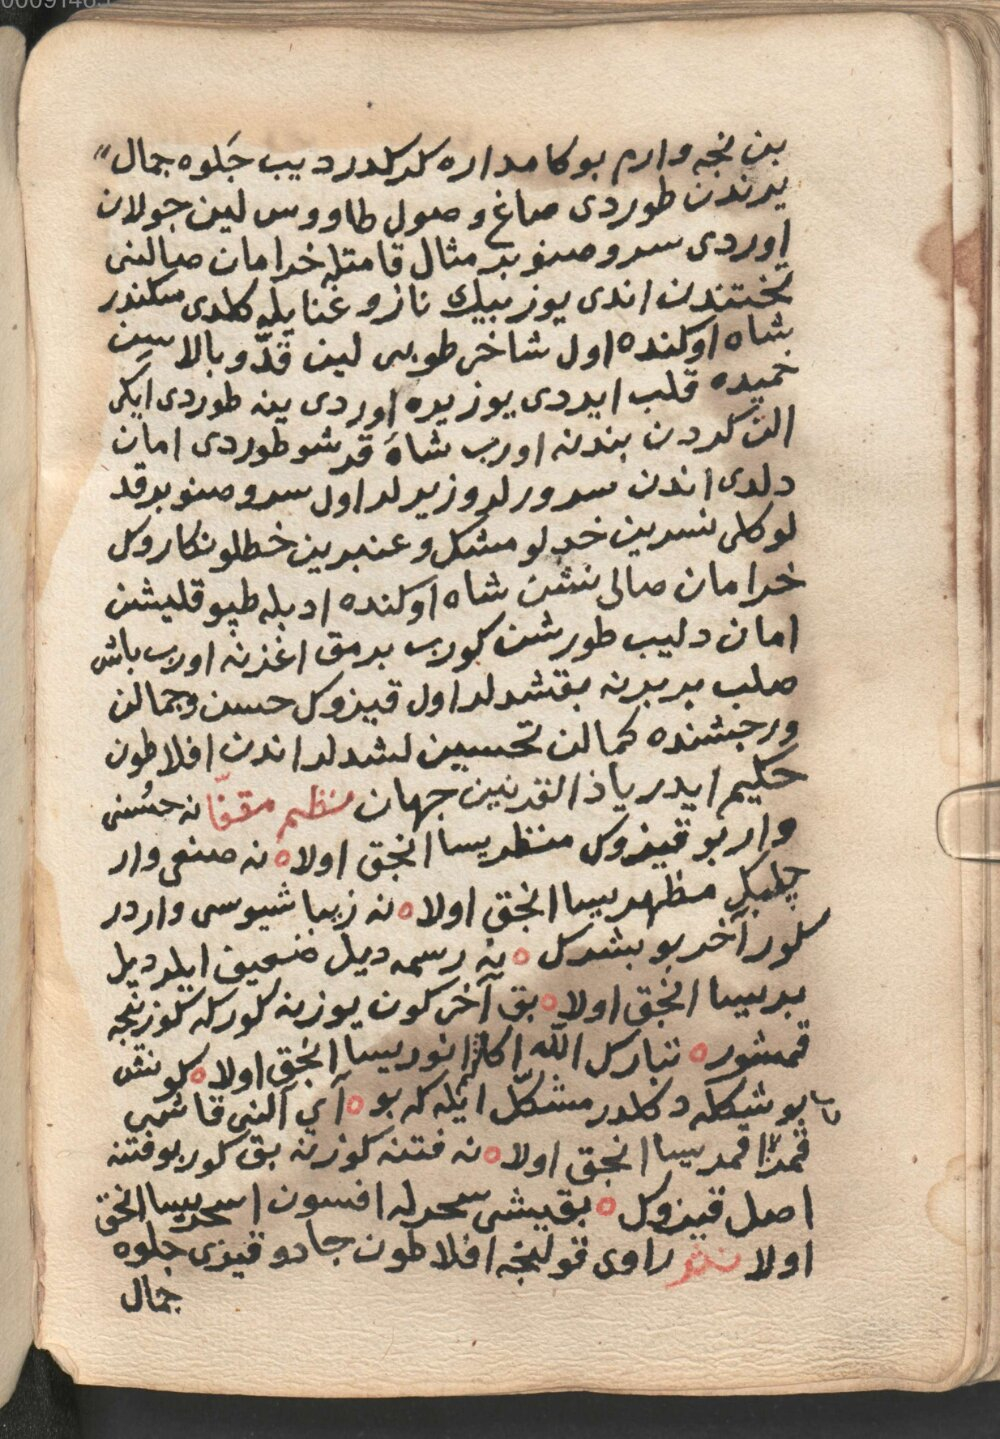 بن نجه وارم بوكا مداره كركلدر ديب جَلوه جمال
يرندن طوردى صاغ و صول طاووس لين جولان
اوردى سرو صنوبر مثال قامتله خرامان صالنى
تختندن اندى يوز بيك ناز و غنايله كلدى سكندر
شاه اوكنده اول شاخ طوبى لين قدّ و بالاسين
خميده قلب ايردى يوز يره اوردى ينه طوردى ايكى
الن كردن بندنه اورب شاهَ قرشو طوردى امان
دلدى اندن سرورلر وزيرلر اول سرو صنوبر قد
لو كلى نسرين خدلو مشكل و عنبرين خطلو نكاروكل
خرامان صالى نشن شاه اوكنده ادبله طپو قليشن
امان دليب طورشن كورب برمق اغزنه اورب باش
صلب بر برنه بقشدلر اول قيزوكل حسن و جمالن
ورجشنده كمالن تحسين لشدلر اندن افلاطون
حكيم ايدر ياذ القرنين جهان منظم مقفّا نه حسُنى
وار بو قيزوكل منظريسا انجق اولا ه نه صنعى وار
چلبكل مظهريسا انجق اولا ه نه زيبا شيوسى واردر
كلور آخر بو بشركل ه نه رسمه ديل ضعيف ايلر ديل
بريسا انجق اولا ه بق آخر كون يوزنه كوركه كلوز نجه
قمشور ه تبارك اللّه اكا انوريسا انجق اولا ه كونش
بو شيكله دكلدر مشكّل ايله كه بو ه آى آلنى قاشى
قمر اقمريسا انجق اولا ه نه فتنه كوزنه بق كور بو فتنه
اصل قيزوكل ه بقيشى سحرله افسون اسحريسا انجق
اولا نثر راوى قولنجه افلاطون جادو قيزى جلوه
جمال